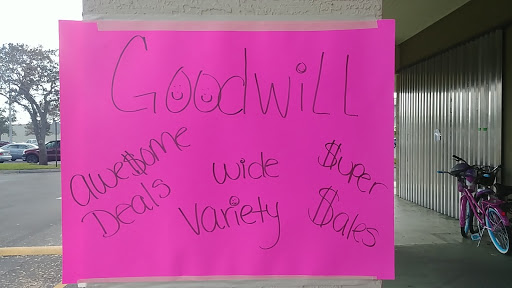 Goodwill
awe$ome
Deals
wide
variety
$uper
$ales